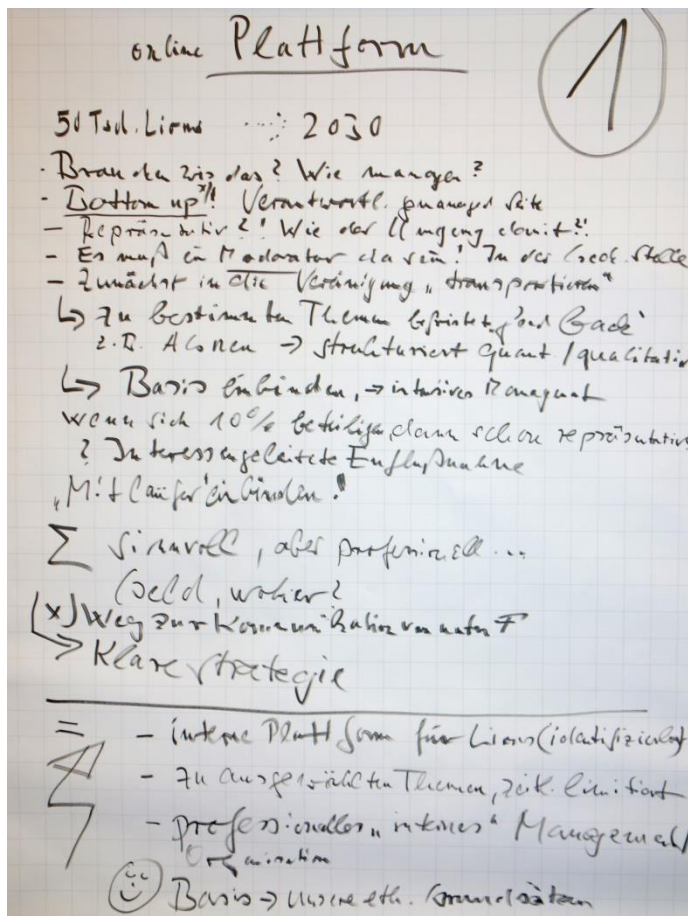 online Plattform
1
50 Tsd. Lions ...> 2030
- Brauchen wir das? Wie managen?
- Bottom up x)!! Verantwortl. gemanagd Seite
- Repräsentativ?! Wie der Umgang damit?!
- Es muß ein Moderator da sein! In der Gesch. Stelle
- Zunächst in die Vereinigung „transportieren"
↳ Zu bestimmten Themen befristetes
z.B. → strukturiert quant/qualitativ
↳ Basis einbinden, → intensives Managment
wenn sich 10% beteiligen, dann schon repräsentativ
? Interessengeleitete Einflußnahme
„Mitläufer" einbinden!
Σ Sinnvoll, aber professionell...
Geld, woher?
(x) Weg zur Kommunikation von unten
↳ Klare Strategie
= - interne Plattform für Lions (identifizierbar)
- Zu ausgewählten Themen, zeitl. limitiert
- professionelles „internes" Management/
Organisation
Basis → unsere eth. Grundsätzen